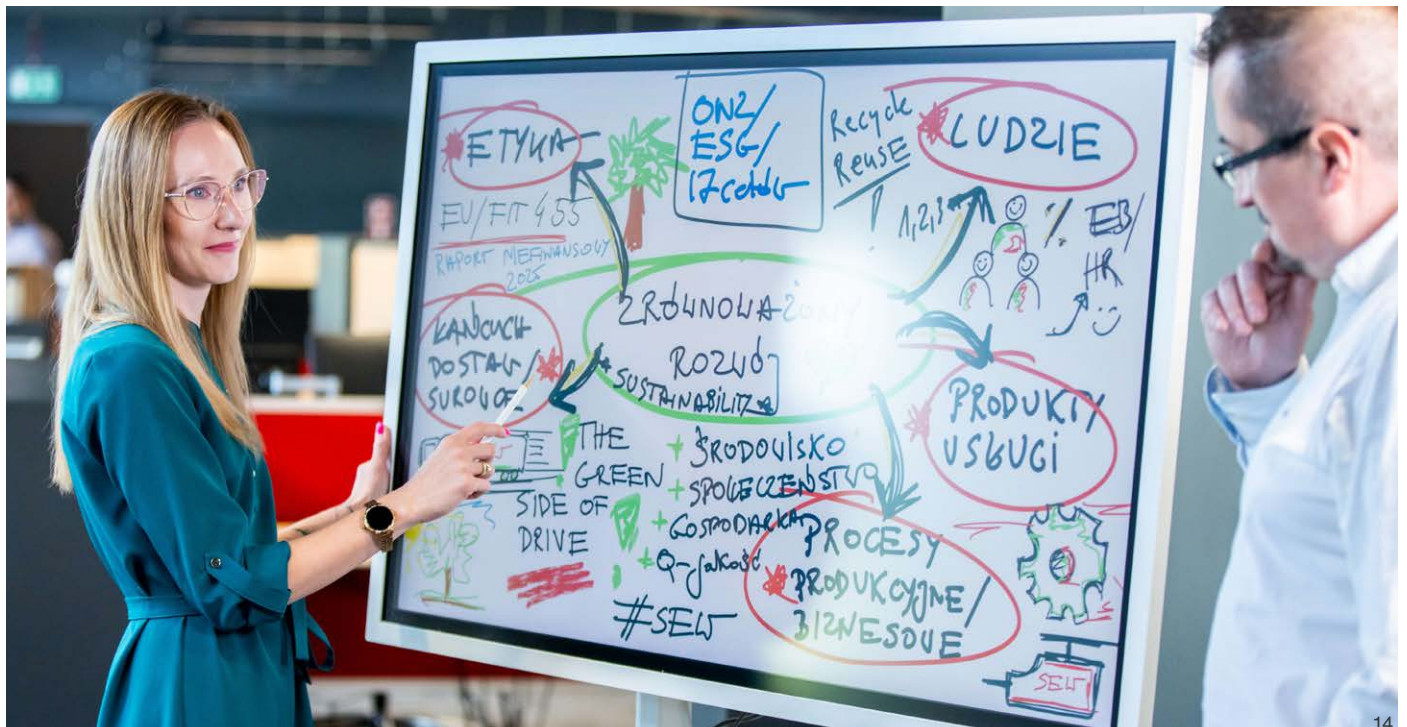 ETYKA
EU/FIT 455
RAPORT NIEFINANSOWY
2025
ONZ/
ESG/
17 celów
Recycle
Reuse
!
LUDZIE
1,2,3
% EB/
HR
ŁAŃCUCH
DOSTAW/
SUROWCE
ZRÓWNOWAŻONY
ROZWÓJ
SUSTAINABILITY
PRODUKTY
USŁUGI
THE
GREEN
SIDE OF
DRIVE
+ ŚRODOWISKO
+ SPOŁECZEŃSTWO
+ GOSPODARKA
+ Q-jakość
#SEW
PROCESY
PRODUKCYJNE/
BIZNESOWE
SEW
14